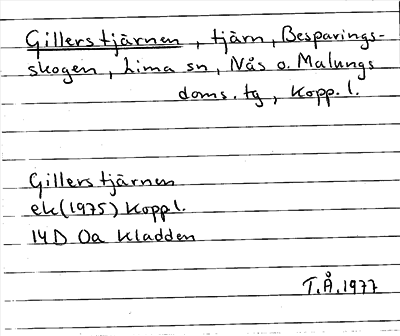 Gillerstjärnen, tjärn, Besparings-
skogen, Lima sn, Nås o. Malungs
doms. tg, Kopp. l.
Gillerstjärnen
ek (1975) Koppl.
14D 0a Kladden
T.Å. 1977